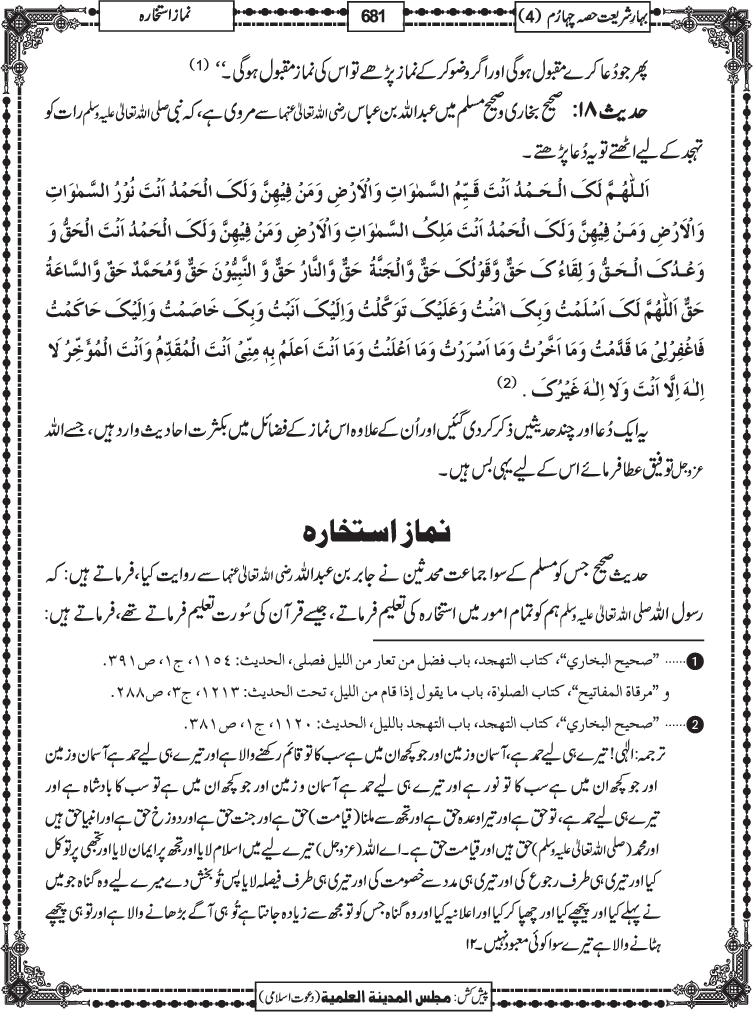 بہارِ شریعت حصہ چہارم (4)
681
نماز استخارہ
پھر جو دُعا کرے مقبول ہوگی اور اگر وضو کر کے نماز پڑھے تو اس کی نماز مقبول ہوگی۔‘‘ (1)
حدیث ۱۸: صحیح بخاری و صحیح مسلم میں عبداللہ بن عباس رضی اللہ تعالیٰ عنہما سے مروی ہے، کہ نبی صلی اللہ تعالیٰ علیہ وسلم رات کو
تہجد کے لیے اٹھتے تو یہ دُعا پڑھتے۔
اَللّٰهُمَّ لَکَ الْحَمْدُ اَنْتَ قَیِّمُ السَّمٰوَاتِ وَالْاَرْضِ وَمَنْ فِیْهِنَّ وَلَکَ الْحَمْدُ اَنْتَ نُوْرُ السَّمٰوَاتِ
وَالْاَرْضِ وَمَنْ فِیْهِنَّ وَلَکَ الْحَمْدُ اَنْتَ مَلِکُ السَّمٰوَاتِ وَالْاَرْضِ وَمَنْ فِیْهِنَّ وَلَکَ الْحَمْدُ اَنْتَ الْحَقُّ وَ
وَعْدُکَ الْحَقُّ وَ لِقَاءُ کَ حَقٌّ وَّقَوْلُکَ حَقٌّ وَّالْجَنَّةُ حَقٌّ وَّالنَّارُ حَقٌّ وَّ النَّبِیُّوْنَ حَقٌّ وَّمُحَمَّدٌ حَقٌّ وَّالسَّاعَةُ
حَقٌّ اَللّٰهُمَّ لَکَ اَسْلَمْتُ وَبِکَ اٰمَنْتُ وَعَلَیْکَ تَوَکَّلْتُ وَاِلَیْکَ اَنَبْتُ وَبِکَ خَاصَمْتُ وَاِلَیْکَ حَاکَمْتُ
فَاغْفِرْلِیْ مَا قَدَّمْتُ وَمَا اَخَّرْتُ وَمَا اَسْرَرْتُ وَمَا اَعْلَنْتُ وَمَا اَنْتَ اَعلَمُ بِهٖ مِنِّیْ اَنْتَ الْمُقَدِّمُ وَاَنْتَ الْمُؤَخِّرُ لَا
اِلٰهَ اِلَّا اَنْتَ وَلَا اِلٰهَ غَیْرُکَ . (2)
یہ ایک دُعا اور چند حدیثیں ذکر کر دی گئیں اور اُن کے علاوہ اس نماز کے فضائل میں بکثرت احادیث وارد ہیں، جسے اللہ
عزوجل توفیق عطا فرمائے اس کے لیے یہی بس ہیں۔
نماز استخارہ
حدیث صحیح جس کو مسلم کے سوا جماعت محدثین نے جابر بن عبداللہ رضی اللہ تعالیٰ عنہما سے روایت کیا، فرماتے ہیں: کہ
رسول اللہ صلی اللہ تعالیٰ علیہ وسلم ہم کو تمام امور میں استخارہ کی تعلیم فرماتے، جیسے قرآن کی سُورت تعلیم فرماتے تھے، فرماتے ہیں:
1 ...... ”صحيح البخاري“، كتاب التهجد، باب فضل من تعار من الليل فصلى، الحديث: ١١٥٤، ج١، ص٣٩١.
و ”مرقاة المفاتيح“، كتاب الصلوٰة، باب ما يقول إذا قام من الليل، تحت الحديث: ١٢١٣، ج٣، ص٢٨٨.
2 ...... ”صحيح البخاري“، كتاب التهجد، باب التهجد بالليل، الحديث: ١١٢٠، ج١، ص٣٨١.
ترجمہ: الٰہی! تیرے ہی لیے حمد ہے، آسمان وزمین اور جو کچھ ان میں ہے سب کا تو قائم رکھنے والا ہے اور تیرے ہی لیے حمد ہے آسمان وزمین
اور جو کچھ ان میں ہے سب کا تو نور ہے اور تیرے ہی لیے حمد ہے آسمان و زمین اور جو کچھ ان میں ہے تو سب کا بادشاہ ہے اور
تیرے ہی لیے حمد ہے، تو حق ہے اور تیرا وعدہ حق ہے اور تجھ سے ملنا (قیامت) حق ہے اور جنت حق ہے اور دوزخ حق ہے اور انبیا حق ہیں
اور محمد (صلی اللہ تعالیٰ علیہ وسلم) حق ہیں اور قیامت حق ہے۔ اے اللہ (عزوجل) تیرے لیے میں اسلام لایا اور تجھ پر ایمان لایا اور تجھی پر توکل
کیا اور تیری ہی طرف رجوع کی اور تیری ہی مدد سے خصومت کی اور تیری ہی طرف فیصلہ لایا پس تُو بخش دے میرے لیے وہ گناہ جو میں
نے پہلے کیا اور پیچھے کیا اور چھپا کر کیا اور اعلانیہ کیا اور وہ گناہ جس کو تو مجھ سے زیادہ جانتا ہے تُو ہی آگے بڑھانے والا ہے اور تو ہی پیچھے
ہٹانے والا ہے تیرے سوا کوئی معبود نہیں۔ ۱۲
پیش کش: مجلس المدينة العلمية (دعوت اسلامی)